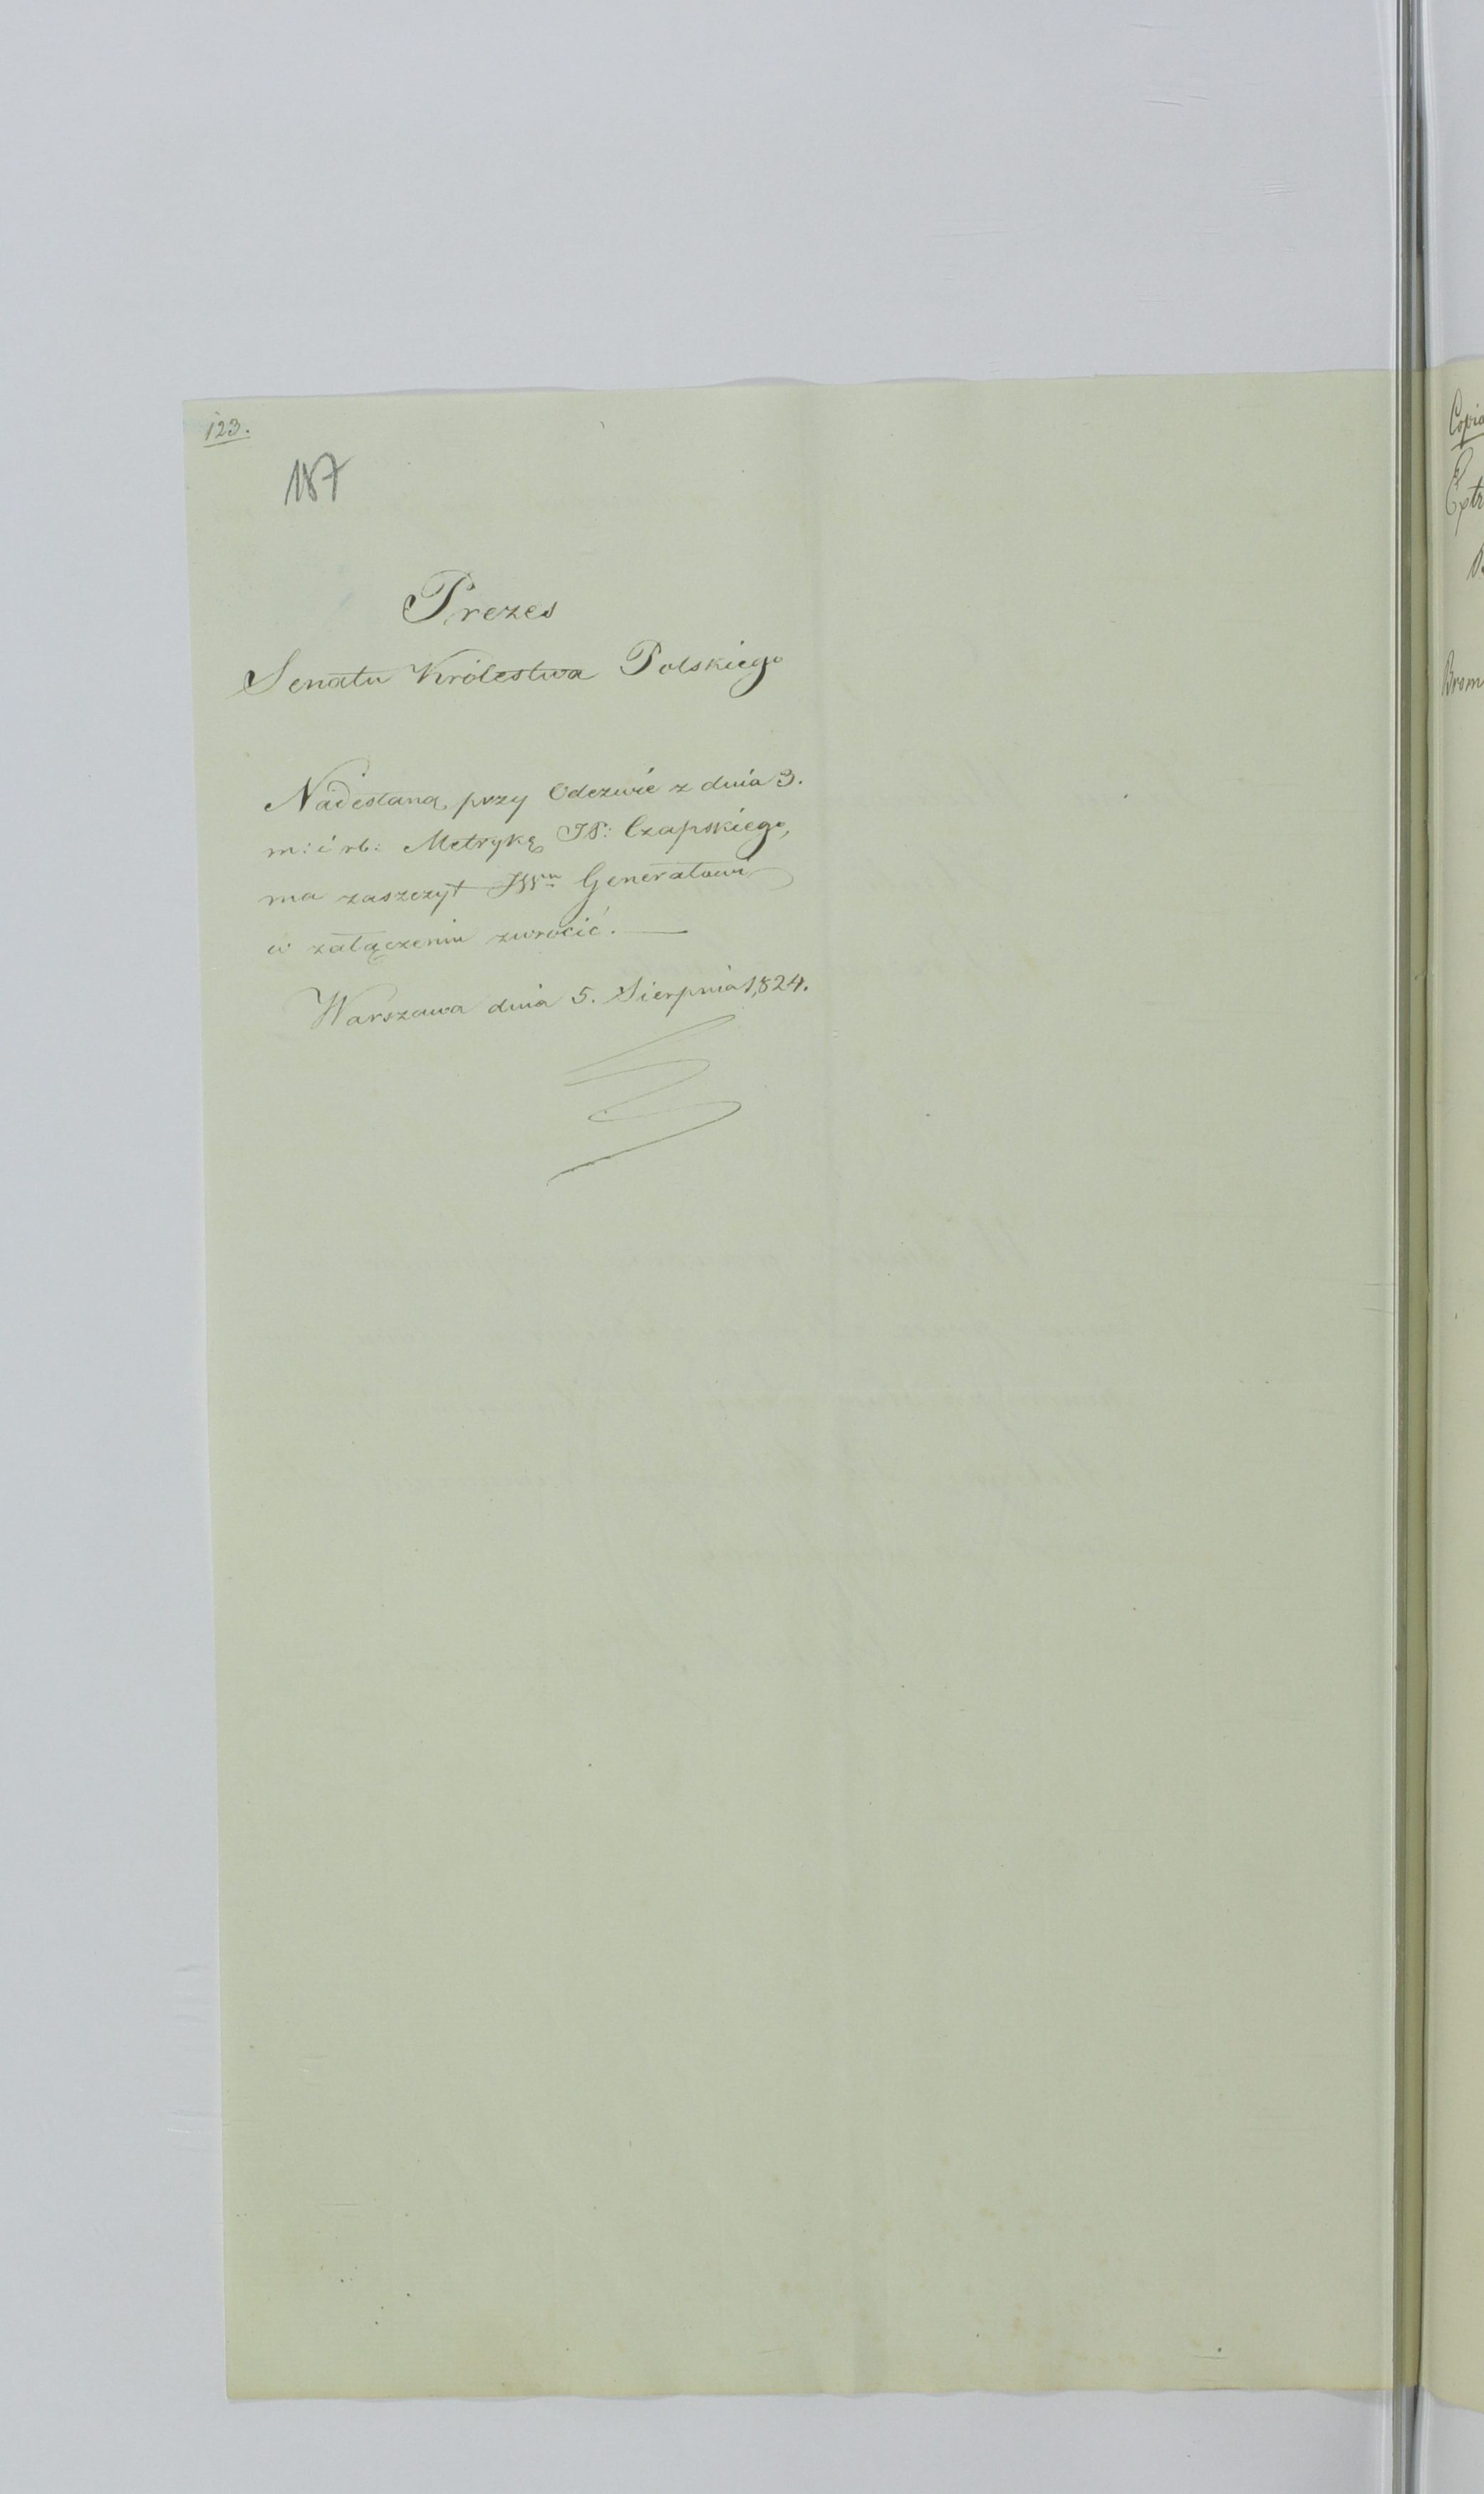 123.
187
Prezes
Senatu Królestwa Polskiego
Nadesłaną przy Odezwie z dnia 3.
m: i rb: Metrykę JP: Czapskiego,
ma zaszczyt JWu Generałowi
w załączeniu zwrócić.
Warszawa dnia 5. Sierpnia 1824.
Copia
Extr
Brom